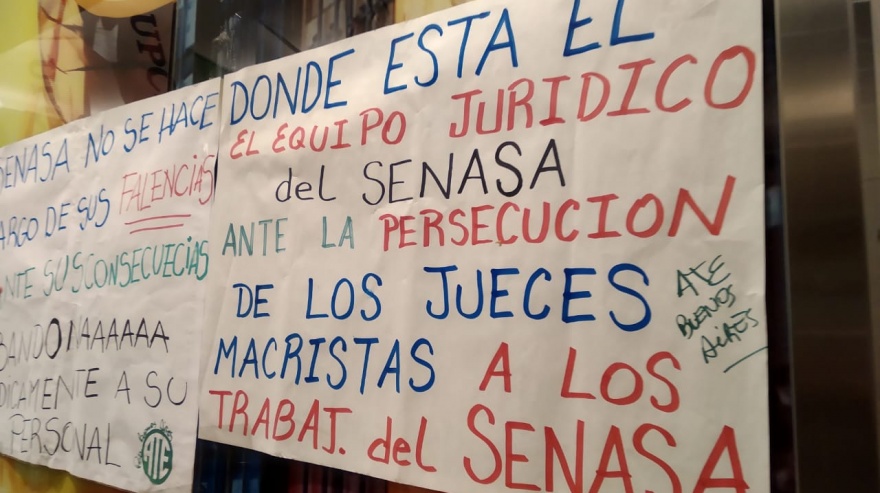 SENASA NO SE HACE
ARGO DE SUS FALENCIAS
ANTE SUS CONSECUECIAS
BANDONAAAAAA
DICAMENTE A SU
PERSONAL
ATE
DONDE ESTA EL
EL EQUIPO JURIDICO
del SENASA
ANTE LA PERSECUCION
DE LOS JUECES
MACRISTAS A LOS
TRABAJ. del SENASA
ATE
BUENOS
AIRES